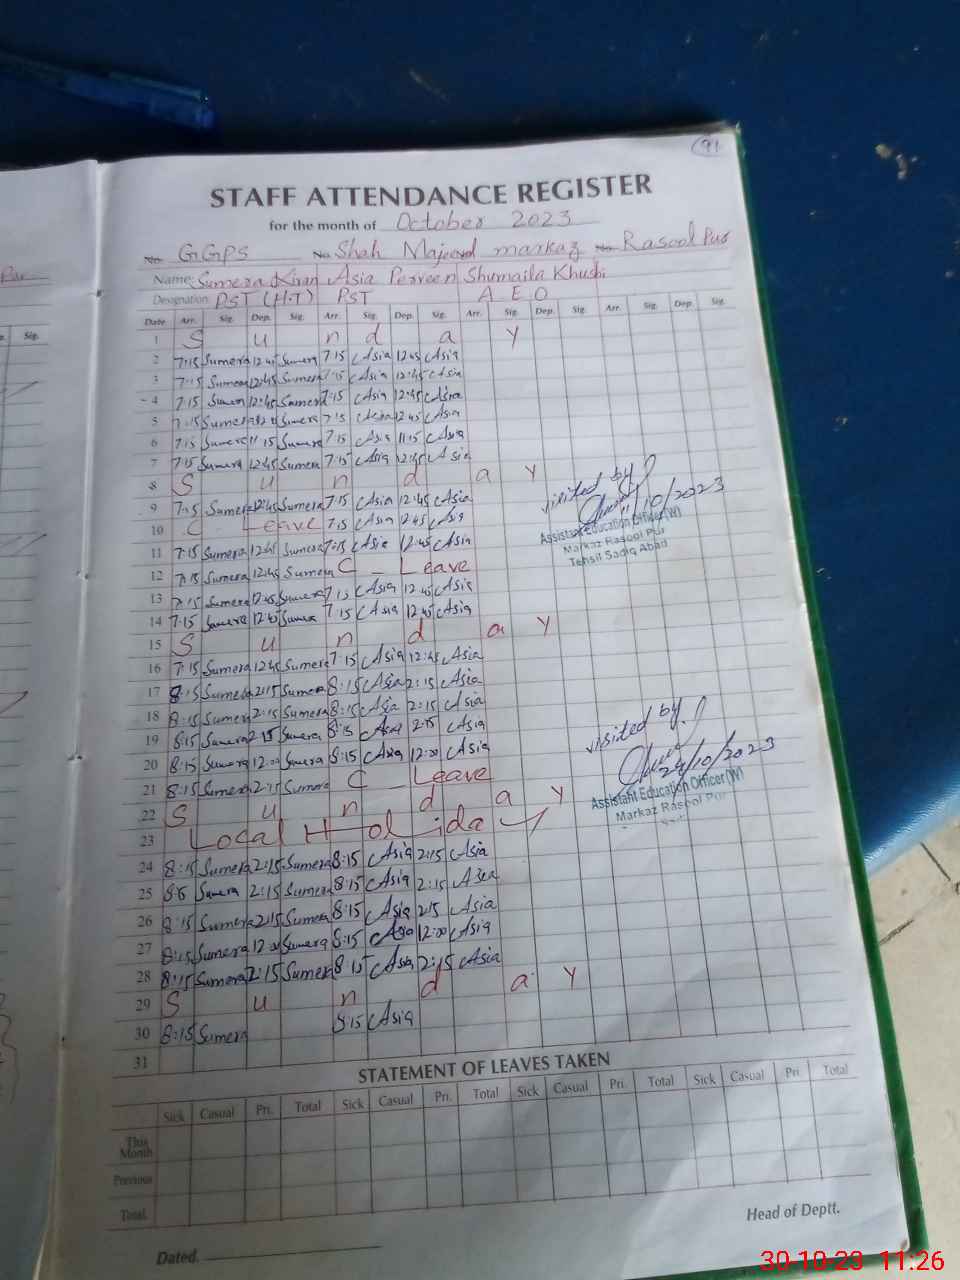 91
STAFF ATTENDANCE REGISTER
for the month of October 2023
GGPS Shah Majeed markaz Rasool Pur
Name: Sumera Kiran Asia Perveen Shumaila Khushi
Designation: PST (H.T) PST A E O
Date Arr. Sig. Dep. Sig. Arr. Sig. Dep. Sig. Arr. Sig. Dep. Sig. Arr. Sig. Dep. Sig.
1 S u n d a y
2 7:15 Sumera 12:45 Sumera 7:15 Asia 12:45 Asia
3 7:15 Sumera 12:45 Sumera 7:15 Asia 12:45 Asia
4 7:15 Sumera 12:45 Sumera 7:15 Asia 12:45 Asia
5 7:15 Sumera Sumera 7:15 Asia 12:45 Asia
6 7:15 Sumera 11:15 Sumera 7:15 Asia 11:15 Asia
7 7:15 Sumera 12:45 Sumera 7:15 Asia 12:45 Asia
8 S u n d a y
9 7:15 Sumera 12:45 Sumera 7:15 Asia 12:45 Asia
10 C Leave 7:15 Asia 12:45 Asia
11 7:15 Sumera 12:45 Sumera 7:15 Asia 12:45 Asia
12 7:15 Sumera 12:45 Sumera C - Leave
13 7:15 Sumera 12:45 Sumera 7:15 Asia 12:45 Asia
14 7:15 Sumera 12:45 Sumera 7:15 Asia 12:45 Asia
15 S u n d a y
16 7:15 Sumera 12:45 Sumera 7:15 Asia 12:45 Asia
17 8:15 Sumera 2:15 Sumera 8:15 Asia 2:15 Asia
18 8:15 Sumera 2:15 Sumera 8:15 Asia 2:15 Asia
19 8:15 Sumera 2:15 Sumera 8:15 Asia 2:15 Asia
20 8:15 Sumera 12:00 Sumera 8:15 Asia 12:00 Asia
21 8:15 Sumera 2:15 Sumera C - Leave
22 S u n d a y
23 Local Holiday
24 8:15 Sumera 2:15 Sumera 8:15 Asia 2:15 Asia
25 8:15 Sumera 2:15 Sumera 8:15 Asia 2:15 Asia
26 8:15 Sumera 2:15 Sumera 8:15 Asia 2:15 Asia
27 8:15 Sumera 12:00 Sumera 8:15 Asia 12:00 Asia
28 8:15 Sumera 2:15 Sumera 8:15 Asia 2:15 Asia
29 S u n d a y
30 8:15 Sumera 8:15 Asia
31
visited by
11/10/2023
Assistant Education Officer (W)
Markaz Rasool Pur
Tehsil Sadiq Abad
visited by
24/10/2023
Assistant Education Officer (W)
Markaz Rasool Pur
STATEMENT OF LEAVES TAKEN
Sick Casual Pri. Total Sick Casual Pri. Total Sick Casual Pri. Total Sick Casual Pri Total
This Month
Previous
Total
Head of Deptt.
Dated.
30-10-23 11:26